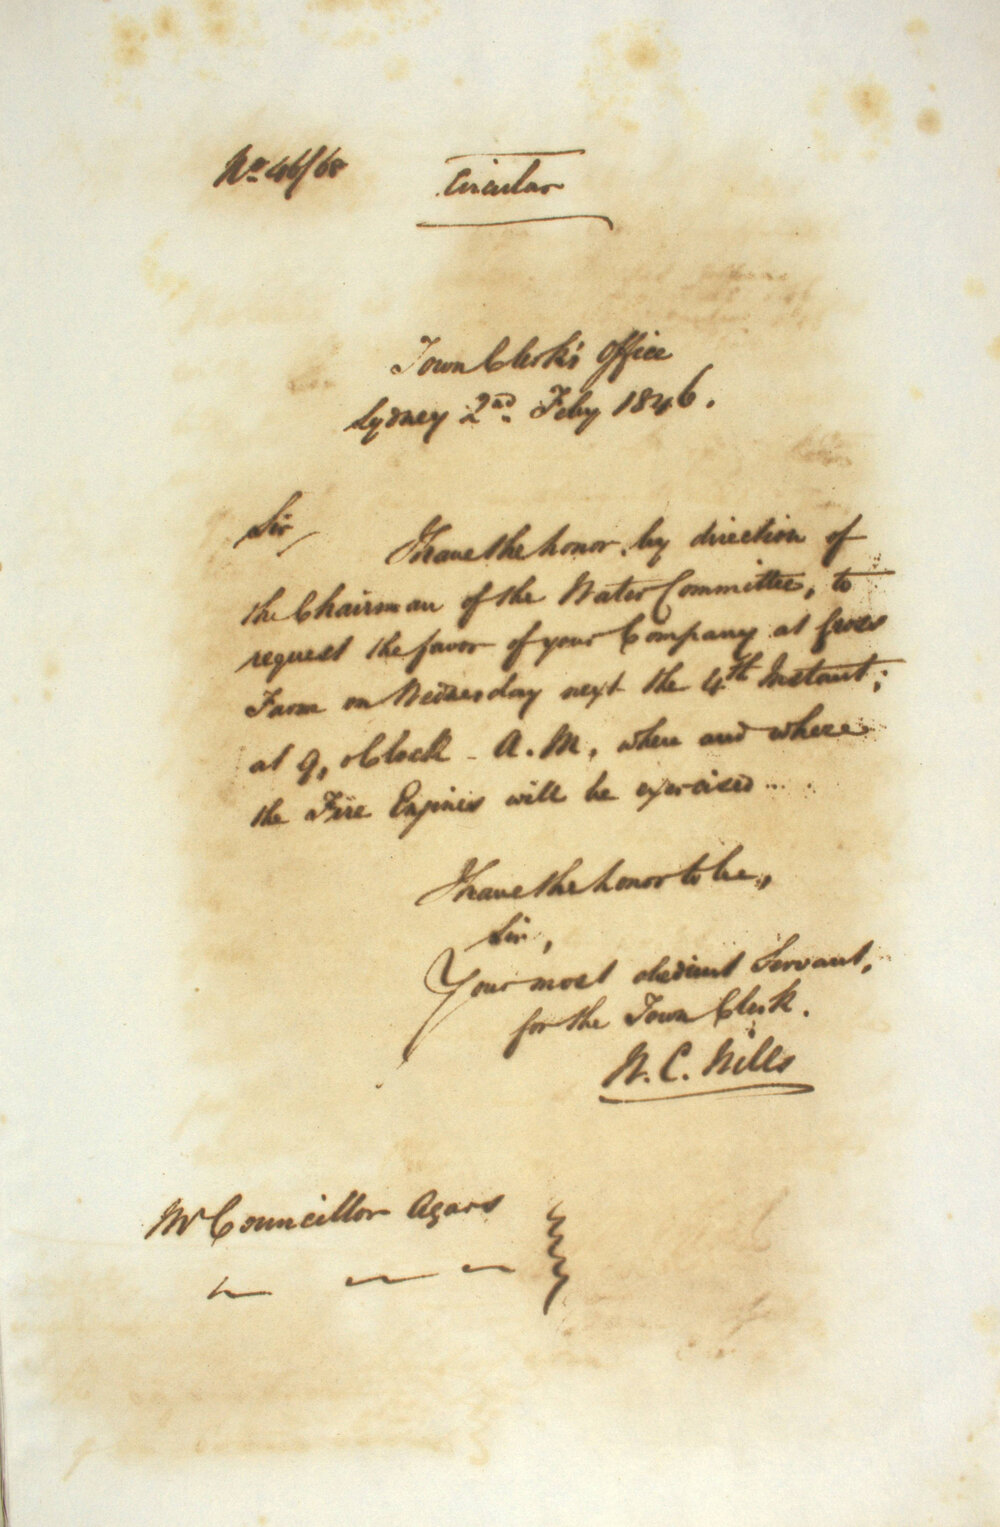 No 46/68
Circular
Town Clerk's Office
Sydney 2nd Feby 1846.
Sir,
I have the honor, by direction of
the Chairman of the Water Committee, to
request the favor of your Company at
Farm on Wednesday next the 4th Instant;
at 9, oClock - A.M, when and where
the Fire Engines will be exercised ...
I have the honor to be,,
Sir,
Your most obedient Servant,
for the Town Clerk.
W. C. Wills
Mr Councillor Agars